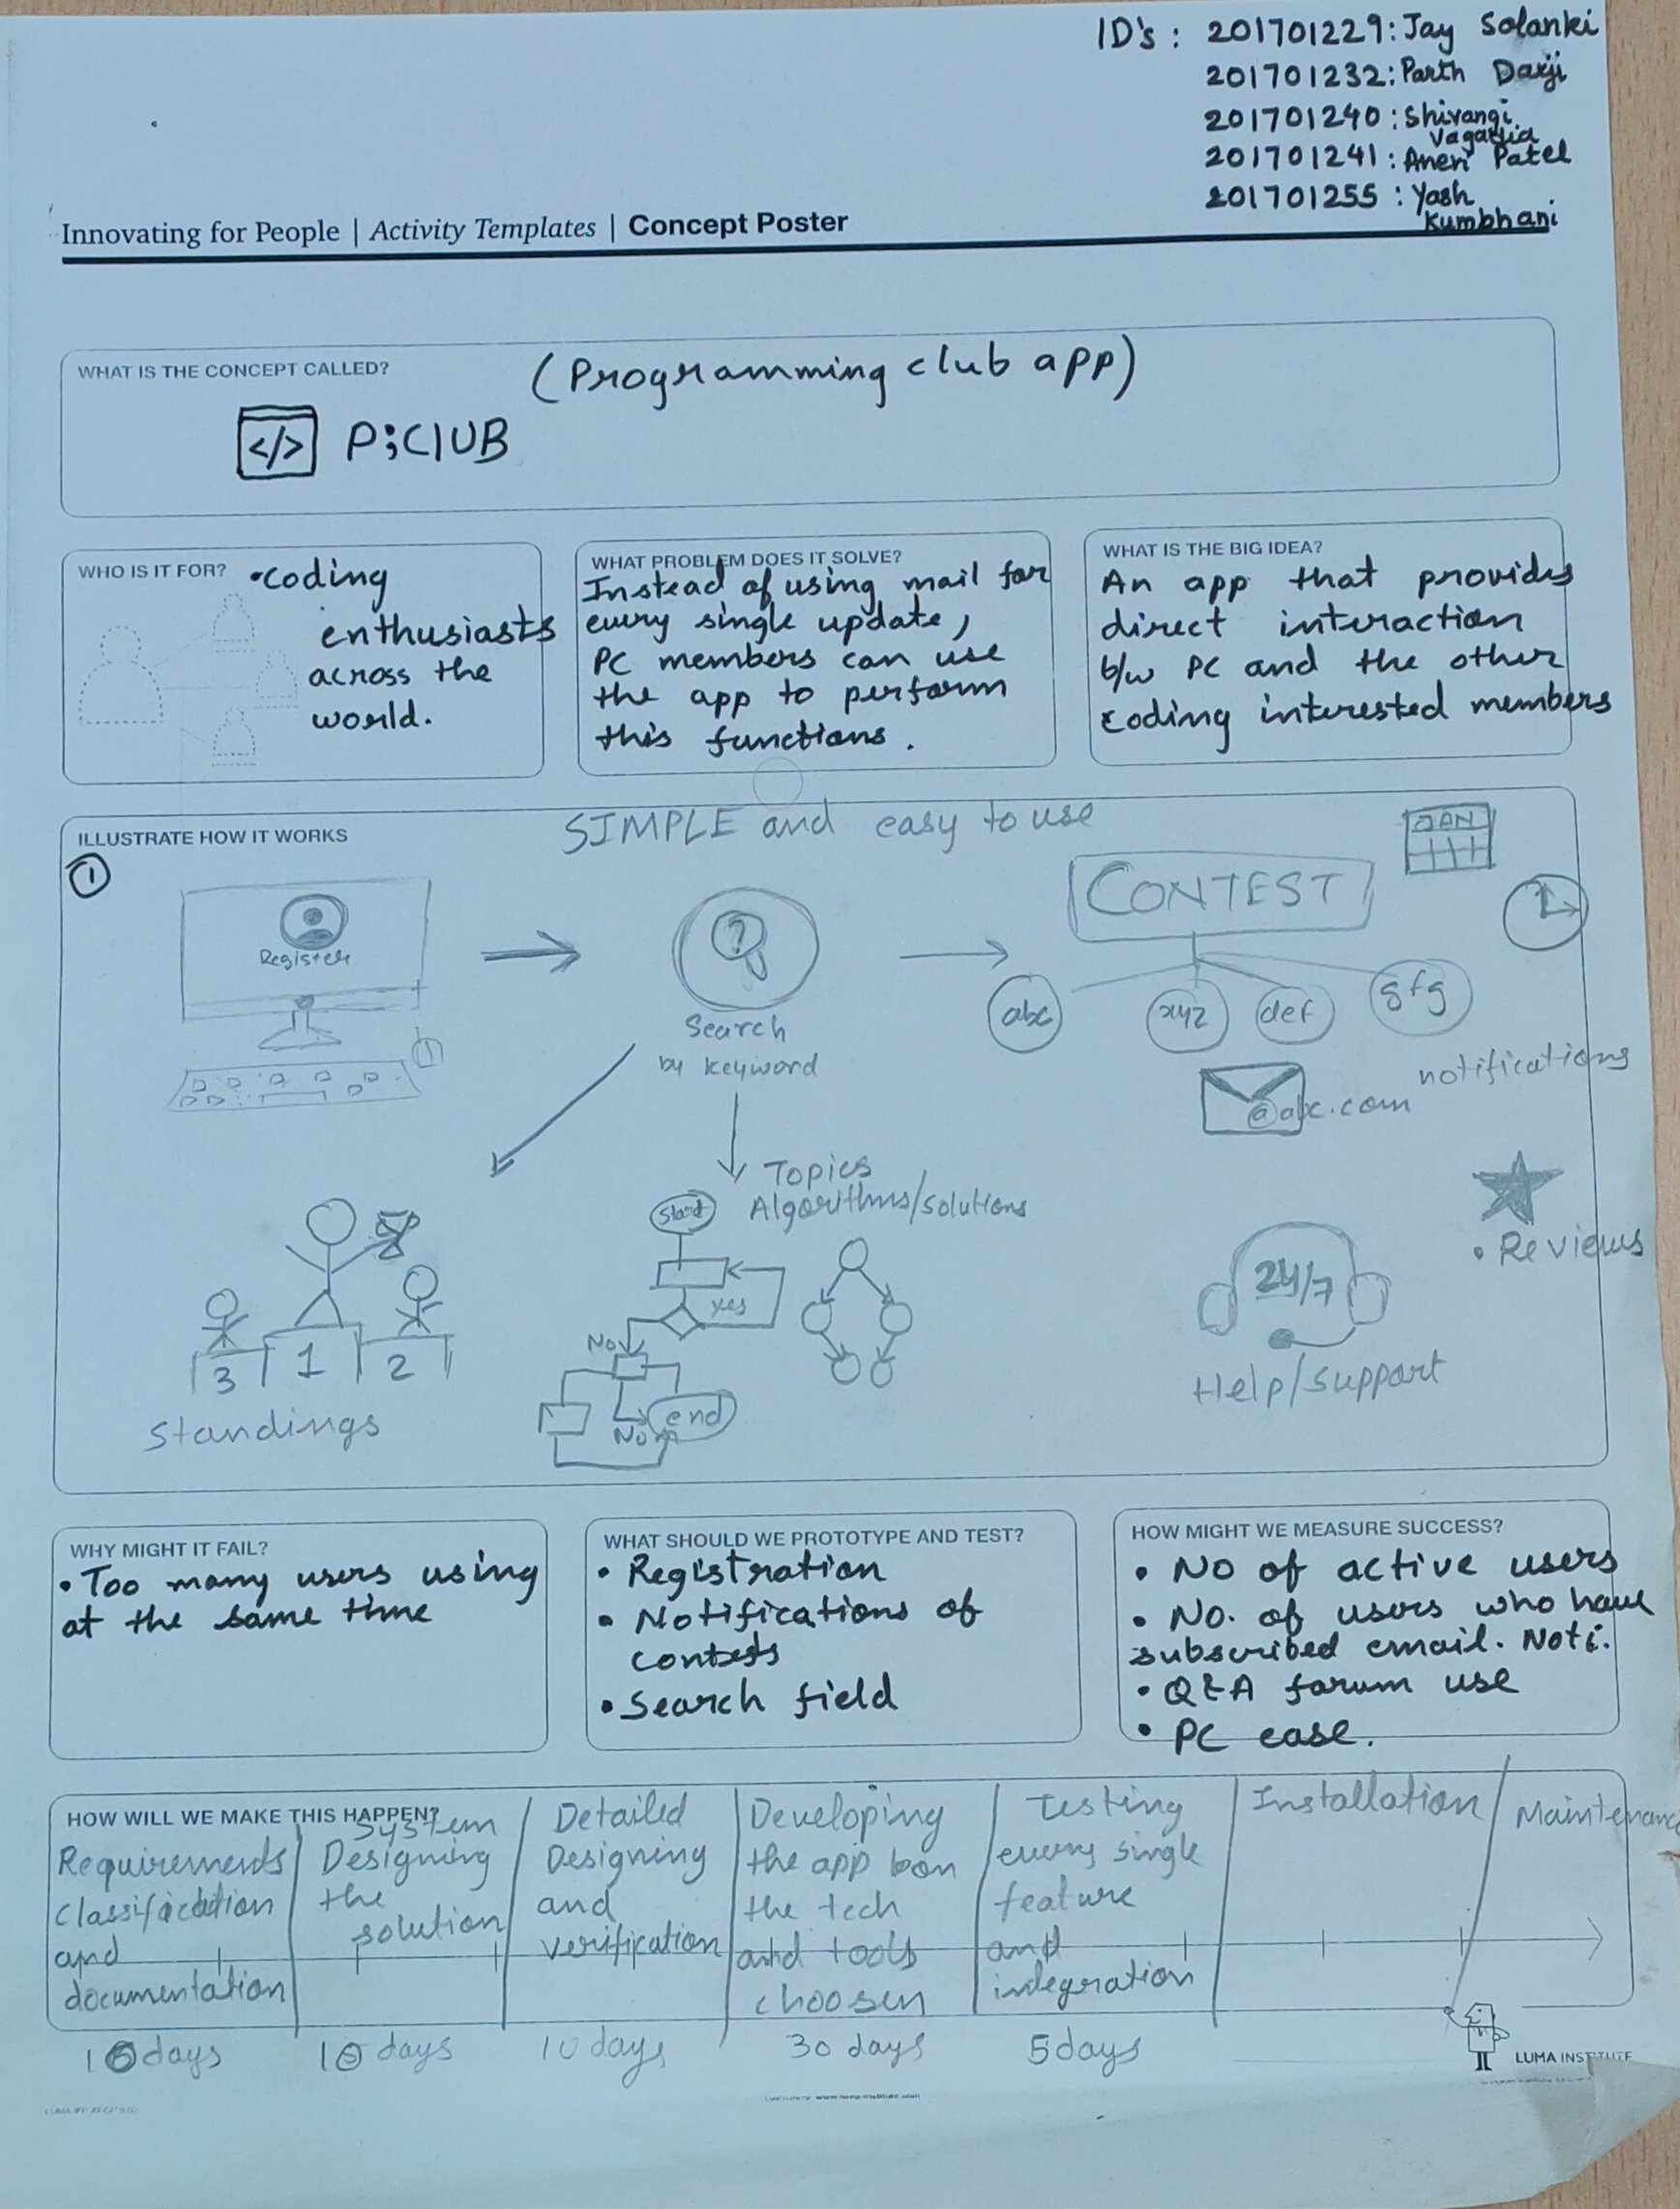 ID's : 201701229: Jay Solanki
201701232: Parth Darji
201701240 : Shivangi
Vagadia
201701241 : Aneri Patel
201701255 : Yash
Kumbhani
Innovating for People | Activity Templates | Concept Poster
WHAT IS THE CONCEPT CALLED?
(Programming club app)
</> P;ClUB
WHO IS IT FOR?
•coding
enthusiasts
across the
world.
WHAT PROBLEM DOES IT SOLVE?
Instead of using mail for
every single update,
PC members can use
the app to perform
this functions.
WHAT IS THE BIG IDEA?
An app that provides
direct interaction
b/w PC and the other
coding interested members
ILLUSTRATE HOW IT WORKS
SIMPLE and easy to use
1
Register
Search
by keyword
CONTEST
JAN
abc
xyz
def
gfg
notifications
@abc.com
Topics
Algorithms/solutions
Start
yes
No
No
end
3 1 2
Standings
24/7
Help/support
• Reviews
WHY MIGHT IT FAIL?
• Too many users using
at the same time
WHAT SHOULD WE PROTOTYPE AND TEST?
• Registration
• Notifications of
contests
• Search field
HOW MIGHT WE MEASURE SUCCESS?
• NO of active users
• No. of users who have
subscribed email. Noti.
• Q&A forum use
• PC ease.
HOW WILL WE MAKE THIS HAPPEN?
Requirements
classification
and
documentation
10 days
System
Designing
the
solution
10 days
Detailed
Designing
and
verification
10 days
Developing
the app
the tech
and tools
choosen
30 days
testing
every single
feature
and
integration
5 days
Installation
Maintenanc
LUMA INSTITUTE